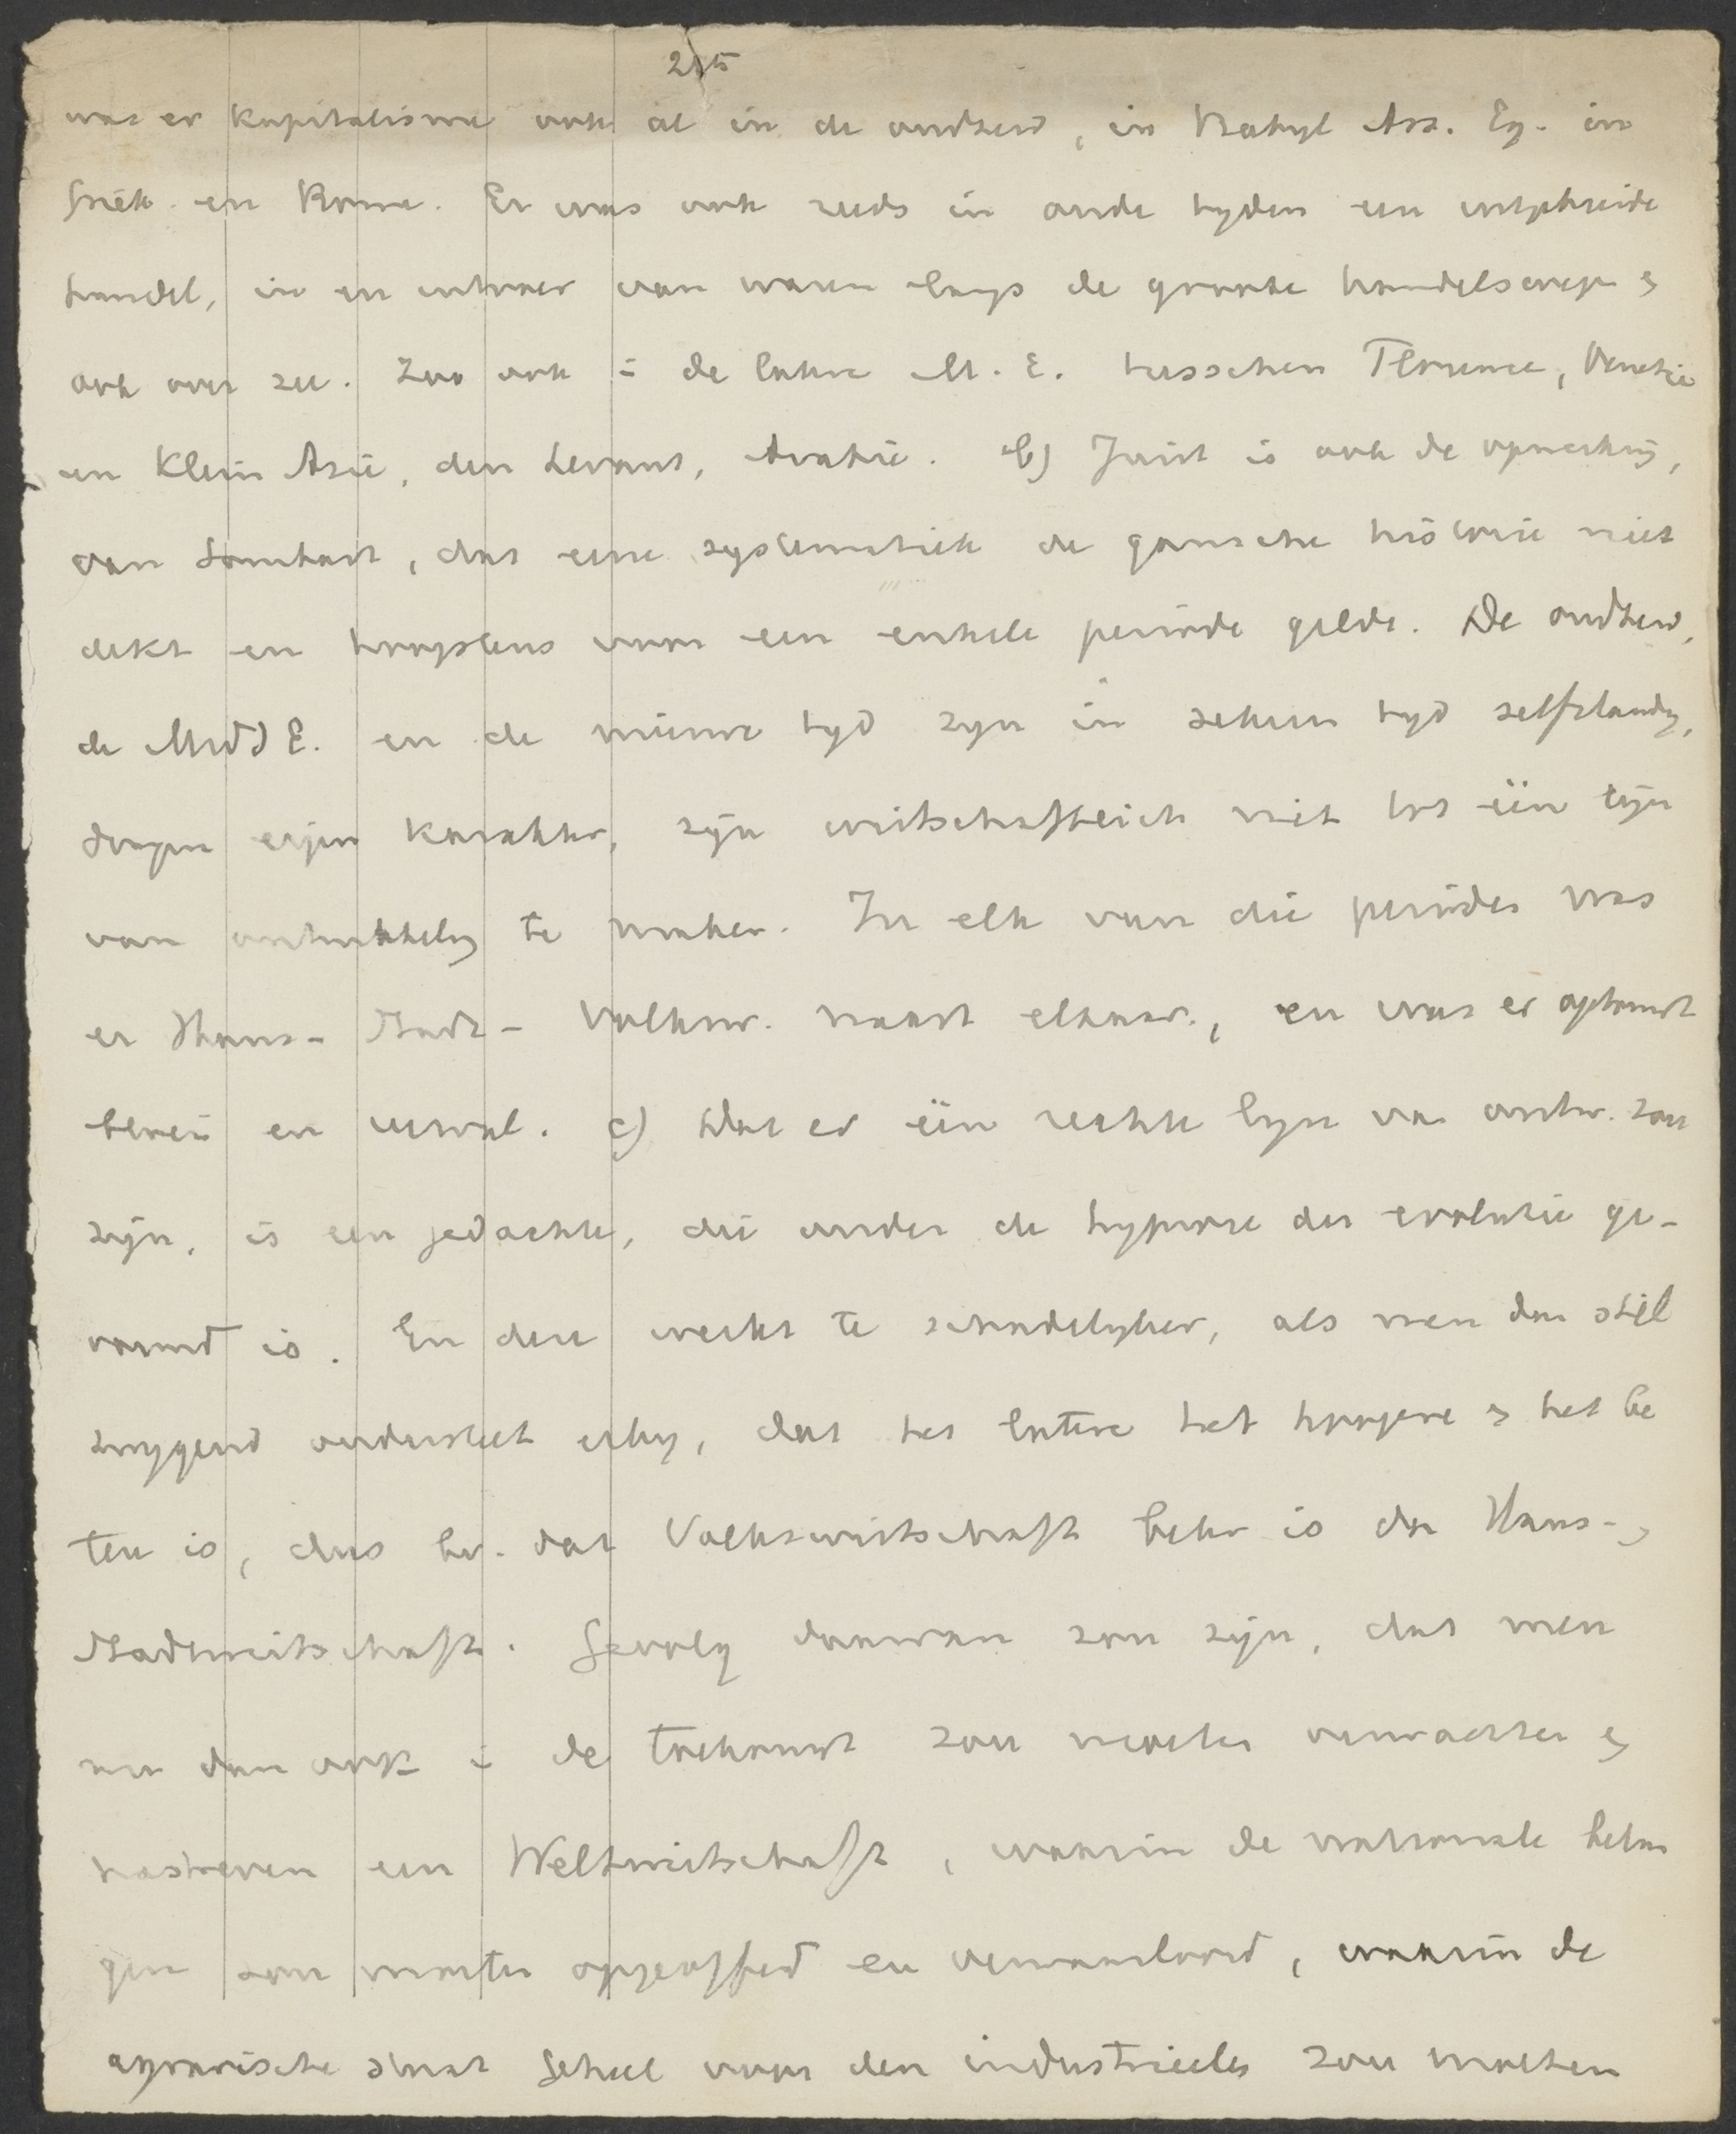 was er Kapitalisme ook al in de oudheid, in Babyl Ass. Eg. in
Griek. en Rome. Er was ook reeds in oude tyden een uitgebreide
handel, in en uitvoer van waren langs de groote handelswegen en
ook over zee. Zoo ook in de latere M. E. tusschen Florence, Venetie
en Klein Azie, den Levant, Arabie. b) Juist is ook de opmerking,
van Sombart, dat eene systematiek de gansche historie niet
dekt en hoogstens voor een enkele periode geldt. De oudheid,
de Midd E. en de nieuwe tyd zyn in zekeren tyd zelfstandig,
dragen eigen karakter, zyn wirtschaftlich niet tot één lijn
van ontwikkeling te maken. In elk van die periodes was
er Haus- Stadt- Volksw. naast elkaar, en was er opkomst
bloei en verval. c) Dat er één rechte lyn van ontw. zou
zijn, is een gedachte, die onder de hypnose der evolutie ge-
vormd is. En deze werkt te schadelyker, als men dan stil
zwygend onderstelt erby, dat het latere het hoogere en het be
tere is, dus bv. dat Volkswirtschaft beter is dan Haus- en
Stadtwirtschaft. Gevolg daarvan zou zijn, dat men
nu dan ook in de toekomst zou moeten verwachten en
nastreven een Weltwirtschaft, waarin de nationale belan
gen zou moeten opgeofferd en verwaarloosd, waarin de
agrarische staat geheel voor den industrieelen zou moeten